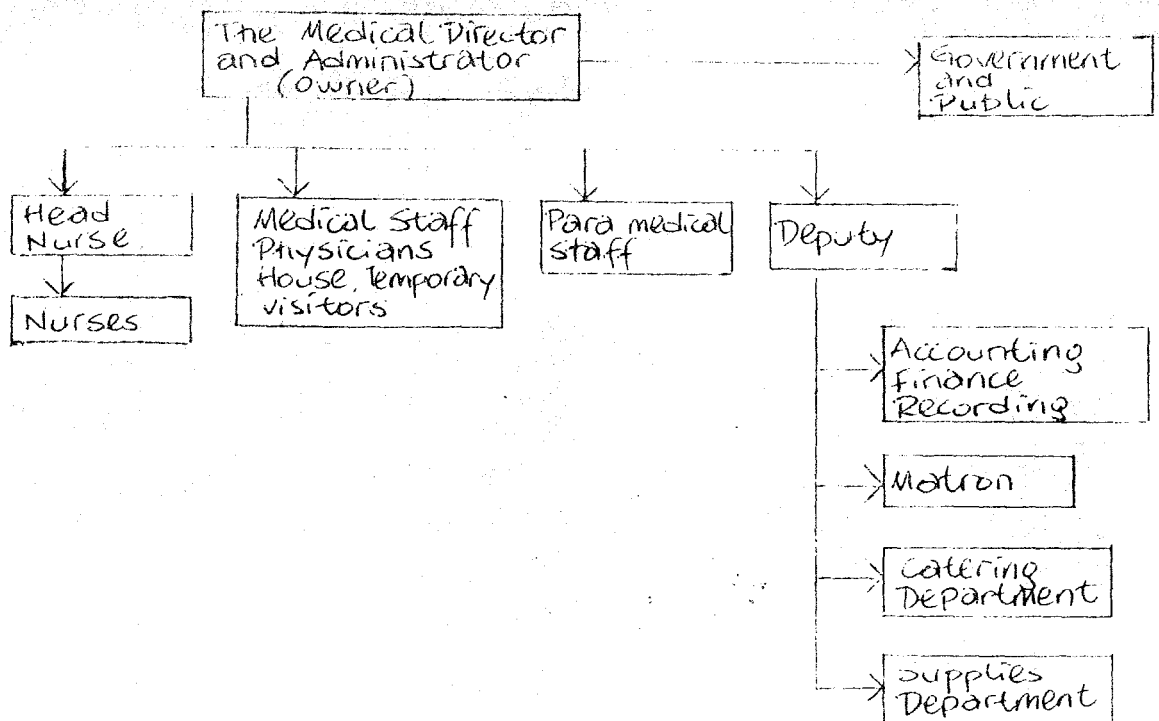 The Medical Director
and Administrator
(Owner)
Government
and
Public
Head
Nurse
Medical Staff
Physicians
House, Temporary
visitors
Para medical
staff
Deputy
Nurses
Accounting
Finance
Recording
Matron
Catering
Department
Supplies
Department